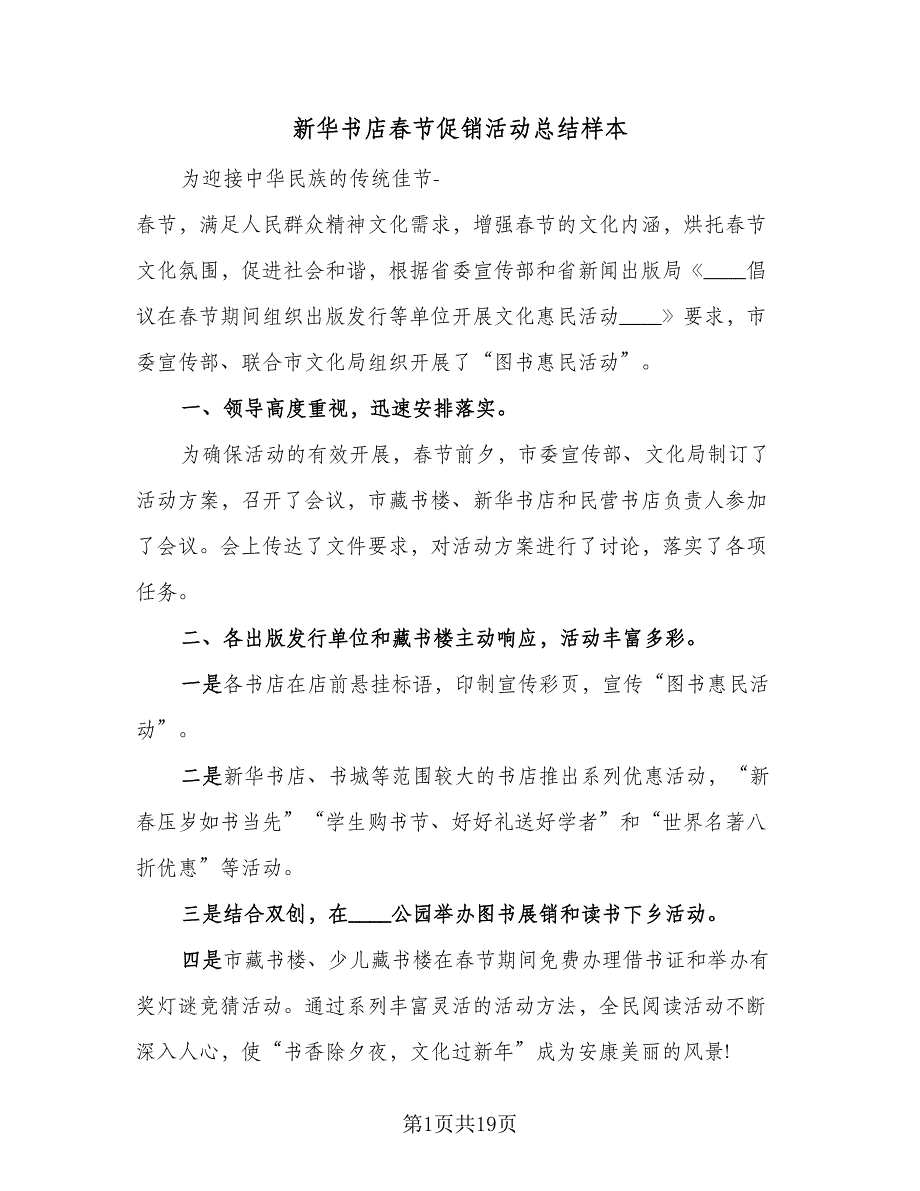 新华书店春节促销活动总结样本
为迎接中华民族的传统佳节-
春节，满足人民群众精神文化需求，增强春节的文化内涵，烘托春节
文化氛围，促进社会和谐，根据省委宣传部和省新闻出版局《____倡
议在春节期间组织出版发行等单位开展文化惠民活动____》要求，市
委宣传部、联合市文化局组织开展了“图书惠民活动”。
一、领导高度重视，迅速安排落实。
为确保活动的有效开展，春节前夕，市委宣传部、文化局制订了
活动方案，召开了会议，市藏书楼、新华书店和民营书店负责人参加
了会议。会上传达了文件要求，对活动方案进行了讨论，落实了各项
任务。
二、各出版发行单位和藏书楼主动响应，活动丰富多彩。
一是各书店在店前悬挂标语，印制宣传彩页，宣传“图书惠民活
动”。
二是新华书店、书城等范围较大的书店推出系列优惠活动，“新
春压岁如书当先”“学生购书节、好好礼送好学者”和“世界名著八
折优惠”等活动。
三是结合双创，在____公园举办图书展销和读书下乡活动。
四是市藏书楼、少儿藏书楼在春节期间免费办理借书证和举办有
奖灯谜竞猜活动。通过系列丰富灵活的活动方法，全民阅读活动不断
深入人心，使“书香除夕夜，文化过新年”成为安康美丽的风景!
第1页共19页